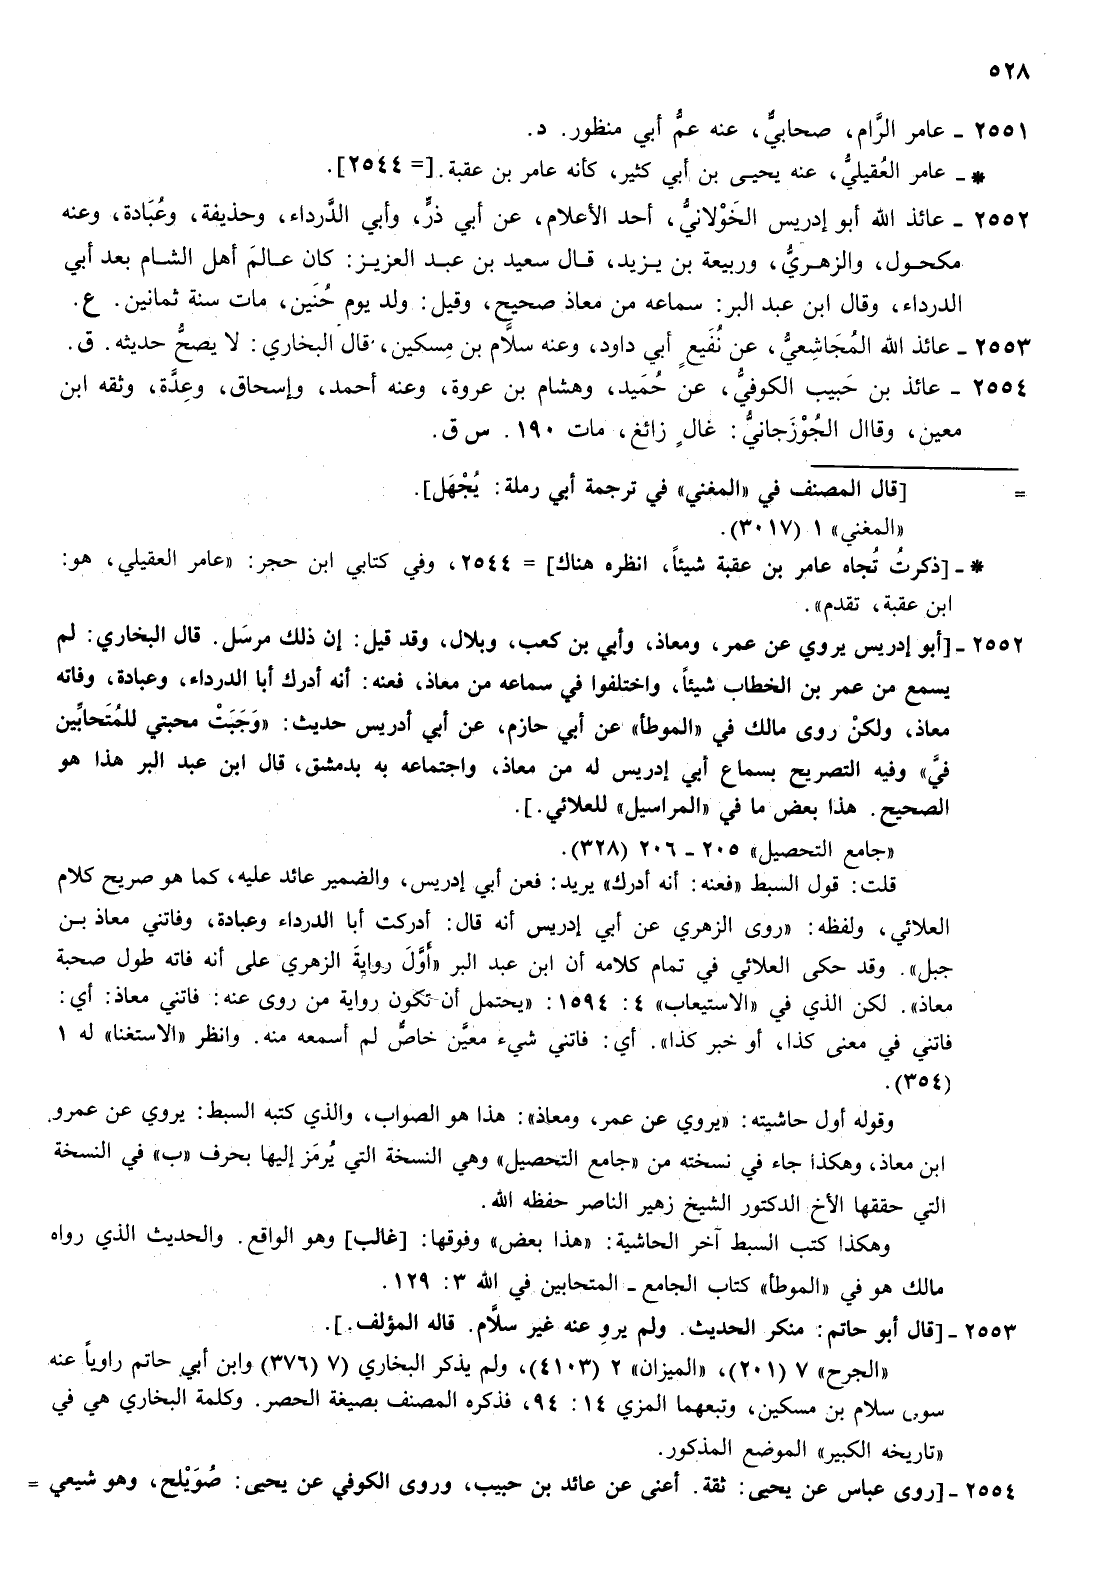 ٥٢٨
٢٥٥١ ـ عامر الرَّام، صحابيٌّ، عنه عمُّ أبي منظور. د.
* ـ عامر العُقيليُّ، عنه يحيـى بن أبي كثير، كأنه عامر بن عقبة. [= ٢٥٤٤].
٢٥٥٢ ـ عائذ الله أبو إدريس الخَوْلانيُّ، أحد الأعلام، عن أبي ذرٍّ، وأبي الدَّرداء، وحذيفة، وعُبَادة، وعنه
مكحـول، والزهـريُّ، وربيعة بن يـزيد، قـال سعيد بن عبـد العزيـز: كان عـالمَ أهل الشـام بعد أبي
الدرداء، وقال ابن عبد البر: سماعه من معاذ صحيح، وقيل: ولد يوم حُنَين، مات سنة ثمانين. ع.
٢٥٥٣ ـ عائذ الله المُجَاشِعيُّ، عن نُفَيعٍ أبي داود، وعنه سلَّام بن مِسكين، قال البخاري: لا يصحُّ حديثه. ق.
٢٥٥٤ ـ عائذ بن حَبيب الكوفيُّ، عن حُمَيد، وهشام بن عروة، وعنه أحمد، وإسحاق، وعِدَّة، وثقه ابن
معين، وقاال الجُوْزَجانيُّ: غالٍ زائغ، مات ١٩٠. س ق.
= [قال المصنف في «المغني» في ترجمة أبي رملة: يُجْهَل].
«المغني» ١ (٣٠١٧).
* ـ [ذكرتُ تُجاه عامر بن عقبة شيئاً، انظره هناك] = ٢٥٤٤، وفي كتابي ابن حجر: «عامر العقيلي، هو:
ابن عقبة، تقدم».
٢٥٥٢ ـ [أبو إدريس يروي عن عمر، ومعاذ، وأبي بن كعب، وبلال، وقد قيل: إن ذلك مرسَل. قال البخاري: لم
يسمع من عمر بن الخطاب شيئاً، واختلفوا في سماعه من معاذ، فعنه: أنه أدرك أبا الدرداء، وعبادة، وفاته
معاذ، ولكنْ روى مالك في «الموطأ» عن أبي حازم، عن أبي أدريس حديث: «وَجَبَتْ محبتي للمُتَحابِّين
فيَّ» وفيه التصريح بسماع أبي إدريس له من معاذ، واجتماعه به بدمشق، قال ابن عبد البر هذا هو
الصحيح. هذا بعض ما في «المراسيل» للعلائي.].
«جامع التحصيل» ٢٠٥ ـ ٢٠٦ (٣٢٨).
قلت: قول السبط «فعنه: أنه أدرك» يريد: فعن أبي إدريس، والضمير عائد عليه، كما هو صريح كلام
العلائي، ولفظه: «روى الزهري عن أبي إدريس أنه قال: أدركت أبا الدرداء وعبادة، وفاتني معاذ بـن
جبل». وقد حكى العلائي في تمام كلامه أن ابن عبد البر «أَوَّلَ روايةَ الزهري على أنه فاته طول صحبة
معاذ». لكن الذي في «الاستيعاب» ٤: ١٥٩٤: «يحتمل أن تكون رواية من روى عنه: فاتني معاذ: أي:
فاتني في معنى كذا، أو خبر كذا». أي: فاتني شيء معيَّن خاصٌّ لم أسمعه منه. وانظر «الاستغنا» له ١
(٣٥٤).
وقوله أول حاشيته: «يروي عن عمر، ومعاذ»: هذا هو الصواب، والذي كتبه السبط: يروي عن عمرو
ابن معاذ، وهكذا جاء في نسخته من «جامع التحصيل» وهي النسخة التي يُرمَز إليها بحرف «ب» في النسخة
التي حققها الأخ الدكتور الشيخ زهير الناصر حفظه الله.
وهكذا كتب السبط آخر الحاشية: «هذا بعض» وفوقها: [غالب] وهو الواقع. والحديث الذي رواه
مالك هو في «الموطأ» كتاب الجامع ـ المتحابين في الله ٣: ١٢٩.
٢٥٥٣ ـ [قال أبو حاتم: منكر الحديث. ولم يروِ عنه غير سلَّام. قاله المؤلف.].
«الجرح» ٧ (٢٠١)، «الميزان» ٢ (٤١٠٣)، ولم يذكر البخاري (٧ (٣٧٦) وابن أبي حاتم راوياً عنه
سوى سلام بن مسكين، وتبعهما المزي ١٤: ٩٤، فذكره المصنف بصيغة الحصر. وكلمة البخاري هي في
«تاريخه الكبير» الموضع المذكور.
٢٥٥٤ ـ [روى عباس عن يحيى: ثقة. أعنى عن عائد بن حبيب، وروى الكوفي عن يحيى: صُوَيْلح، وهو شيعي =